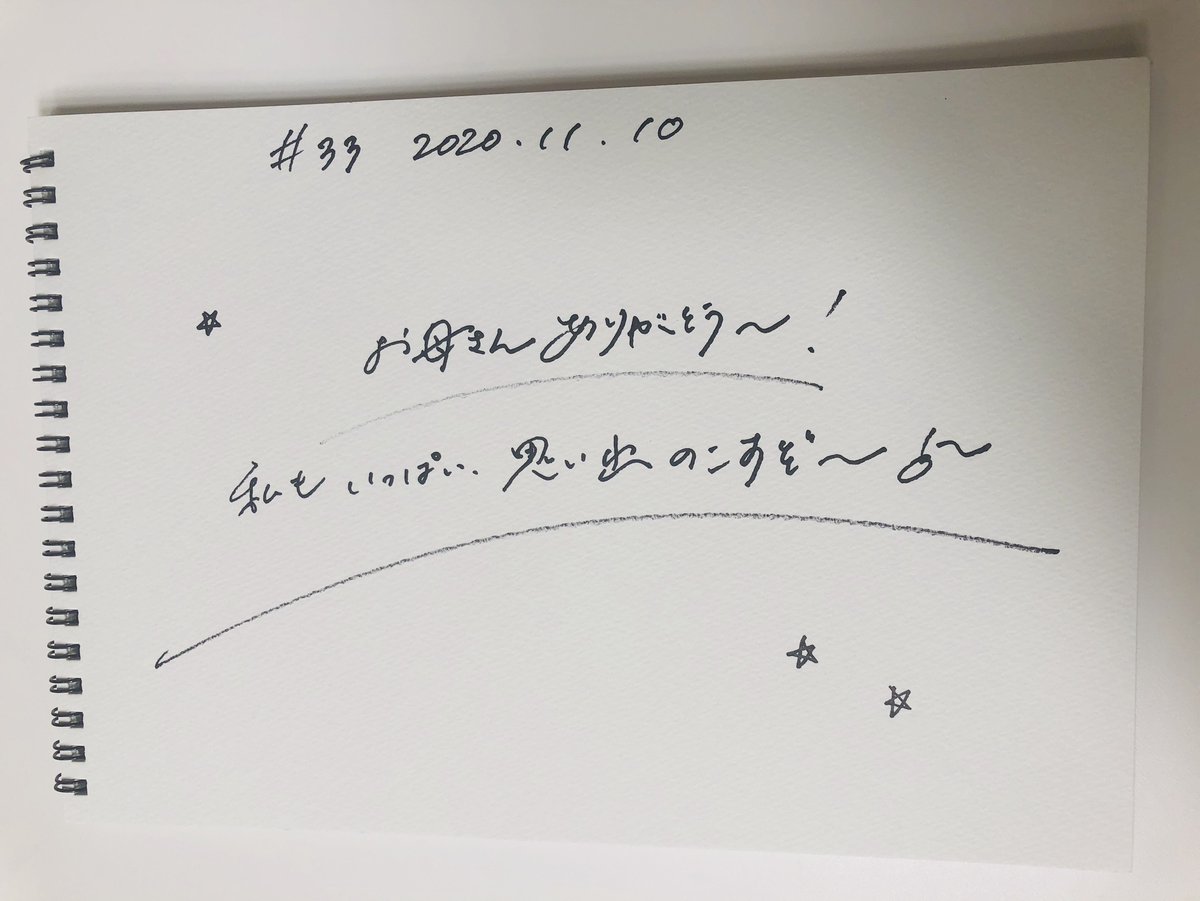 #33 2020.11.10
お母さんありがとう〜!
私もいっぱい思い出のこすぞ〜♪〜